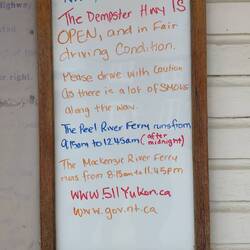 Highway,
The Dempster Hwy IS
OPEN, and in Fair
driving Condition.
Please drive with Caution
as there is a lot of SMOKE
along the way.
The Peel River Ferry runs from
9:15am to 12:45am (after
midnight)
The Mackenzie River Ferry
runs from 8:15am to 11:45PM
WWW.511Yukon.ca
www.gov.nt.ca
right.